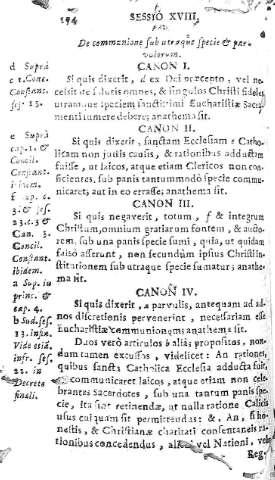 194 SESSIO XVIII.
De communione sub utraque specie & par-
vulorum.
CANON I.
Si quis dixerit, ex Dei præcepto, vel ne-
cessitate salutis omnes, & singulos Christi fideles
utramque speciem sanctissimi Eucharistiæ Sacra-
menti sumere debere; anathema sit.
CANON II.
Si quis dixerit, sanctam Ecclesiam Catho-
licam non justis causis, & rationibus adductam
fuisse, ut laicos, atque etiam Clericos non con-
ficientes, sub panis tantummodò specie commu-
nicaret, aut in eo errasse; anathema sit.
CANON III.
Si quis negaverit, totum, f & integrum
Christum, omnium gratiarum fontem, & aucto-
rem, sub una panis specie sumi, quia, ut quidam
falsò asserunt, non secundùm ipsius Christi in-
stitutionem sub utraque specie sumatur; anathe-
ma sit.
CANON IV.
Si quis dixerit, a parvulis, antequam ad an-
nos discretionis pervenerint, necessariam esse
Eucharistiæ communionem; anathema sit.
Duos verò articulos aliàs propositos, non-
dum tamen excussos, videlicet: An rationes,
quibus sancta Catholica Ecclesia adducta fuit,
ut communicaret laicos, atque etiam non cele-
brantes Sacerdotes, sub una tantum panis spe-
cie, ita sint retinendæ, ut nulla ratione Calicis
usus cuiquam sit permittendus: & An, si ho-
nestis, & Christianæ charitati consentaneis ra-
tionibus concedendus, alicui vel Nationi, vel
Reg-
d Suprà
c 1. Conc.
Constant.
ses. 13.
e Suprà
cap. 2. &
Concil.
Constant.
ibidem.
f cap. 3.
3. & ses.
13. c. 3 &
Can. 3.
Concil.
Constant.
ibidem.
a Sup. in
princ. &
cap. 4.
b Sud. ses.
13. in fin.
Vide etiã.
infr. ses.
22. in
Decreto
finali.